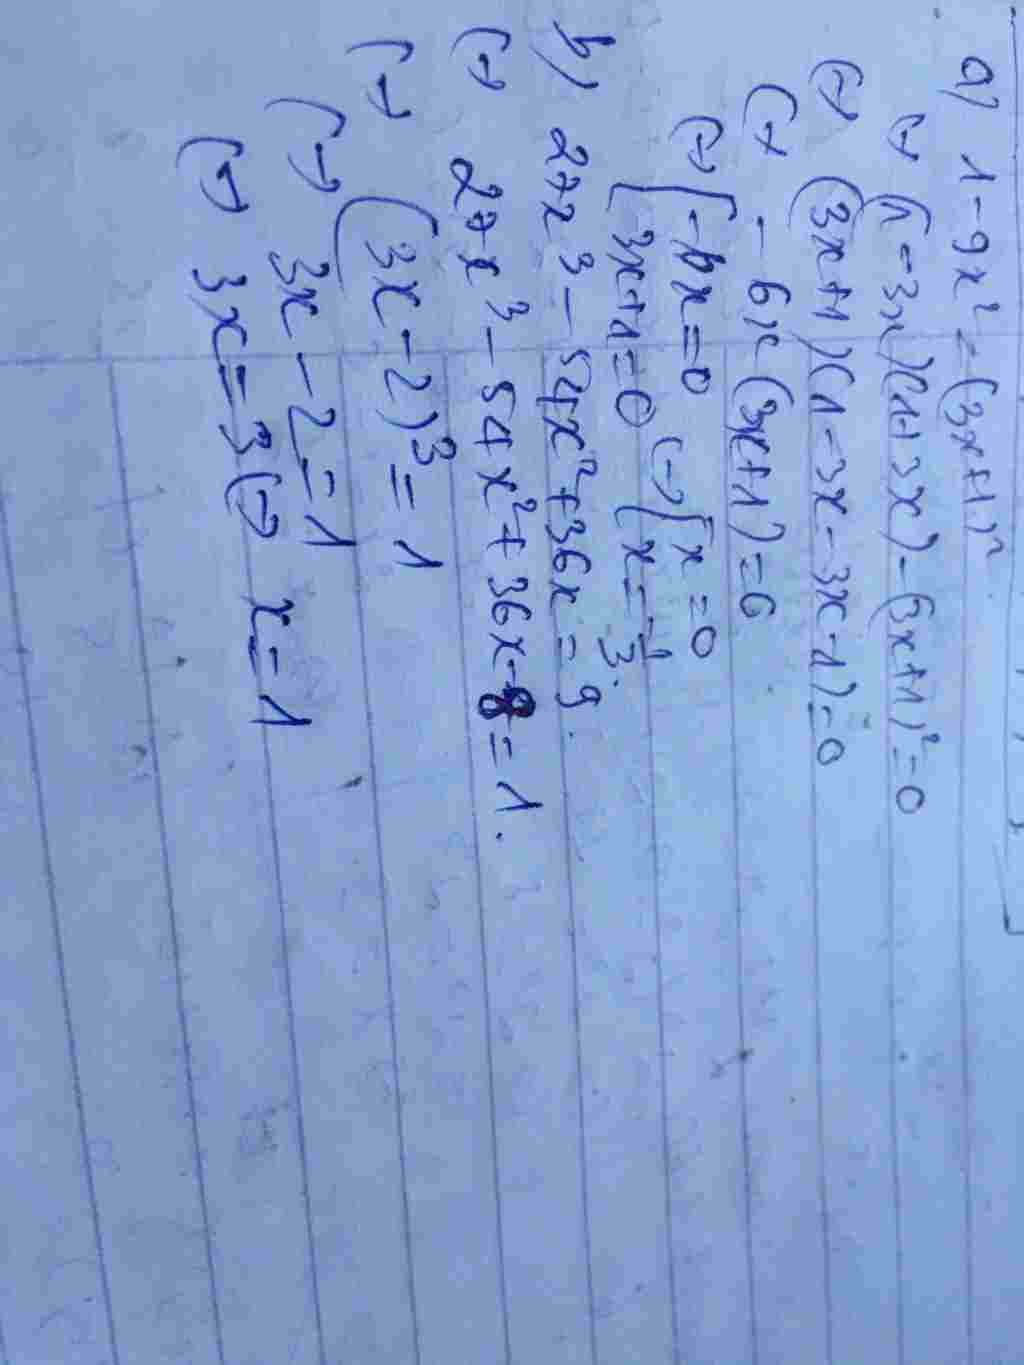 a) 1-9x² = (3x+1)²
(→ (1-3x)(1+3x) - (3x+1)² = 0
(→ (3x+1)(1-3x-3x-1) = 0
(→ -6x(3x+1) = 0
(→ [-6x=0 (→ [x=0
[3x+1=0 [x=-1/3.
b) 27x³ - 54x² + 36x = 9.
(→ 27x³ - 54x² + 36x - 8 = 1.
(→ (3x-2)³ = 1
(→ 3x - 2 = 1
(→ 3x = 3 (→ x = 1